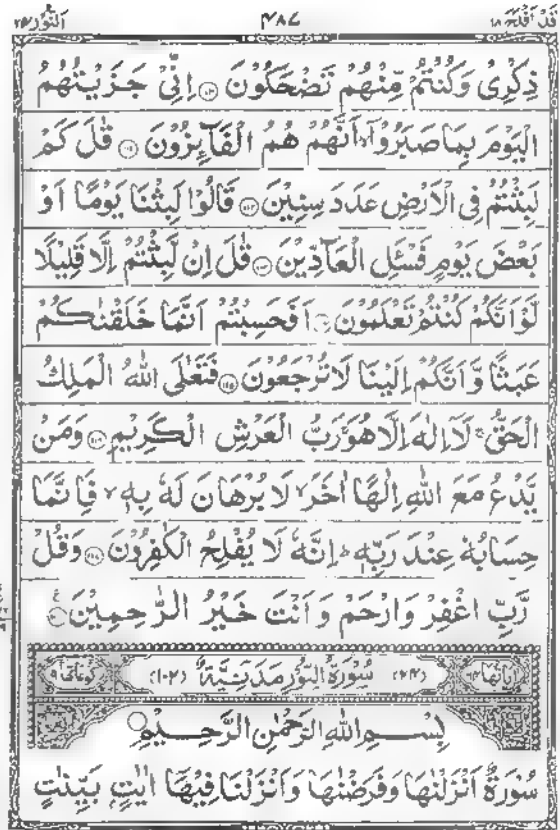 اَلنُّوْر ۲۴ ۴۸۷ قَدْ اَفْلَحَ ۱۸
ذِكْرِىْ وَكُنْتُمْ مِّنْهُمْ تَضْحَكُوْنَ ۝ اِنِّىْ جَزَيْتُهُمُ
الْيَوْمَ بِمَا صَبَرُوْۤا ۙ اَنَّهُمْ هُمُ الْفَآئِزُوْنَ ۝ قٰلَ كَمْ
لَبِثْتُمْ فِى الْاَرْضِ عَدَدَ سِنِيْنَ ۝ قَالُوْا لَبِثْنَا يَوْمًا اَوْ
بَعْضَ يَوْمٍ فَسْئَلِ الْعَآدِّيْنَ ۝ قٰلَ اِنْ لَّبِثْتُمْ اِلَّا قَلِيْلًا
لَّوْ اَنَّكُمْ كُنْتُمْ تَعْلَمُوْنَ ۝ اَفَحَسِبْتُمْ اَنَّمَا خَلَقْنٰكُمْ
عَبَثًا وَّاَنَّكُمْ اِلَيْنَا لَا تُرْجَعُوْنَ ۝ فَتَعٰلَى اللّٰهُ الْمَلِكُ
الْحَقُّ ۚ لَاۤ اِلٰهَ اِلَّا هُوَ ۚ رَبُّ الْعَرْشِ الْكَرِيْمِ ۝ وَمَنْ
يَّدْعُ مَعَ اللّٰهِ اِلٰهًا اٰخَرَ ۙ لَا بُرْهَانَ لَهٗ بِهٖ ۙ فَاِنَّمَا
حِسَابُهٗ عِنْدَ رَبِّهٖ ؕ اِنَّهٗ لَا يُفْلِحُ الْكٰفِرُوْنَ ۝ وَقُلْ
رَّبِّ اغْفِرْ وَارْحَمْ وَاَنْتَ خَيْرُ الرّٰحِمِيْنَ ۝
اٰيَاتُهَا ۶۴ (۲۴) سُوْرَةُ النُّوْرِ مَدَنِيَّةٌ (۱۰۲) رُكُوْعَاتُهَا ۹
بِسْمِ اللّٰهِ الرَّحْمٰنِ الرَّحِيْمِ ۝
سُوْرَةٌ اَنْزَلْنٰهَا وَفَرَضْنٰهَا وَاَنْزَلْنَا فِيْهَاۤ اٰيٰتٍۭ بَيِّنٰتٍ